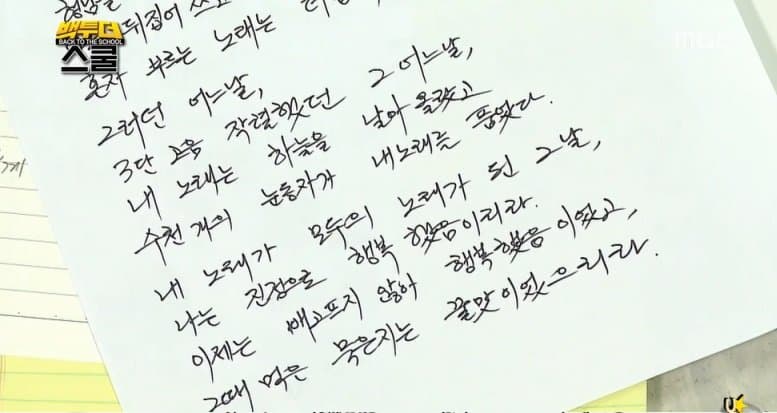 백투더
BACK TO THE SCHOOL
스쿨
MBC
뒤집어 쓰고
혼자 부르는 노래는
그러던 어느날,
3단 고음 작렬했던 그 어느날,
내 노래는 하늘을 날아 올랐고
수천 개의 눈동자가 내노래를 품었다.
내 노래가 모두의 노래가 된 그날,
나는 진정으로 행복 했음이리라.
이제는 배고프지 않아 행복했음 이었고,
그때 먹은 묵은지는 꿀맛이었으리라.